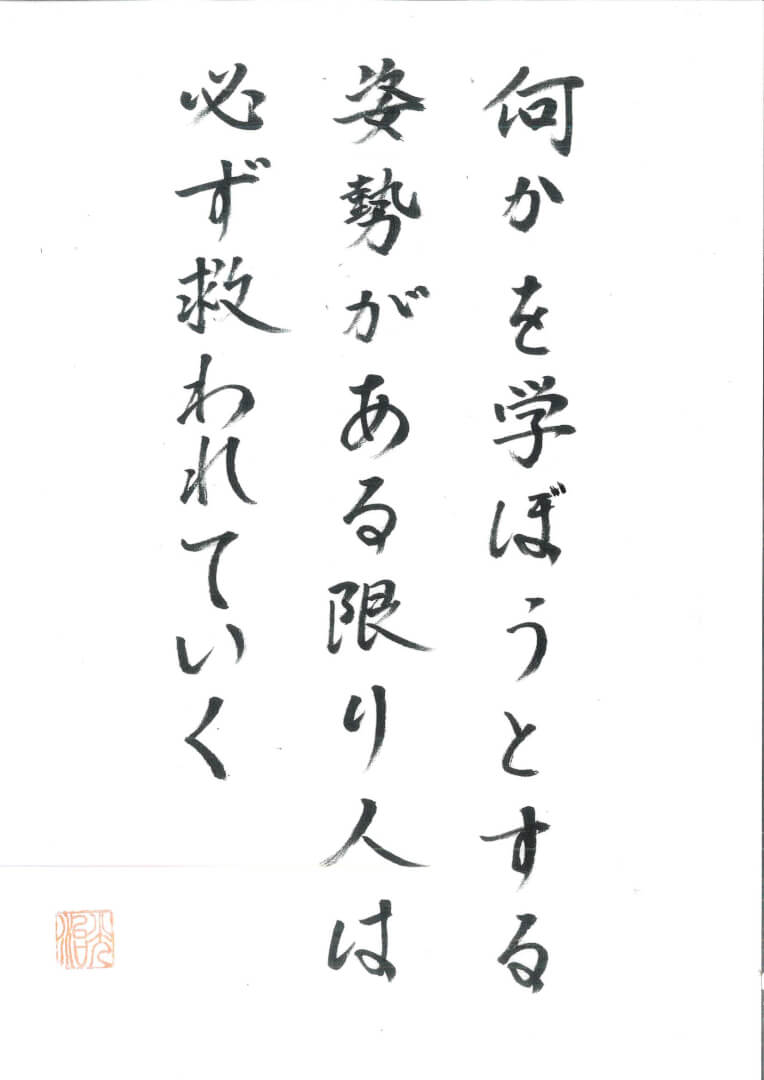 何かを学ぼうとする
姿勢がある限り人は
必ず救われていく